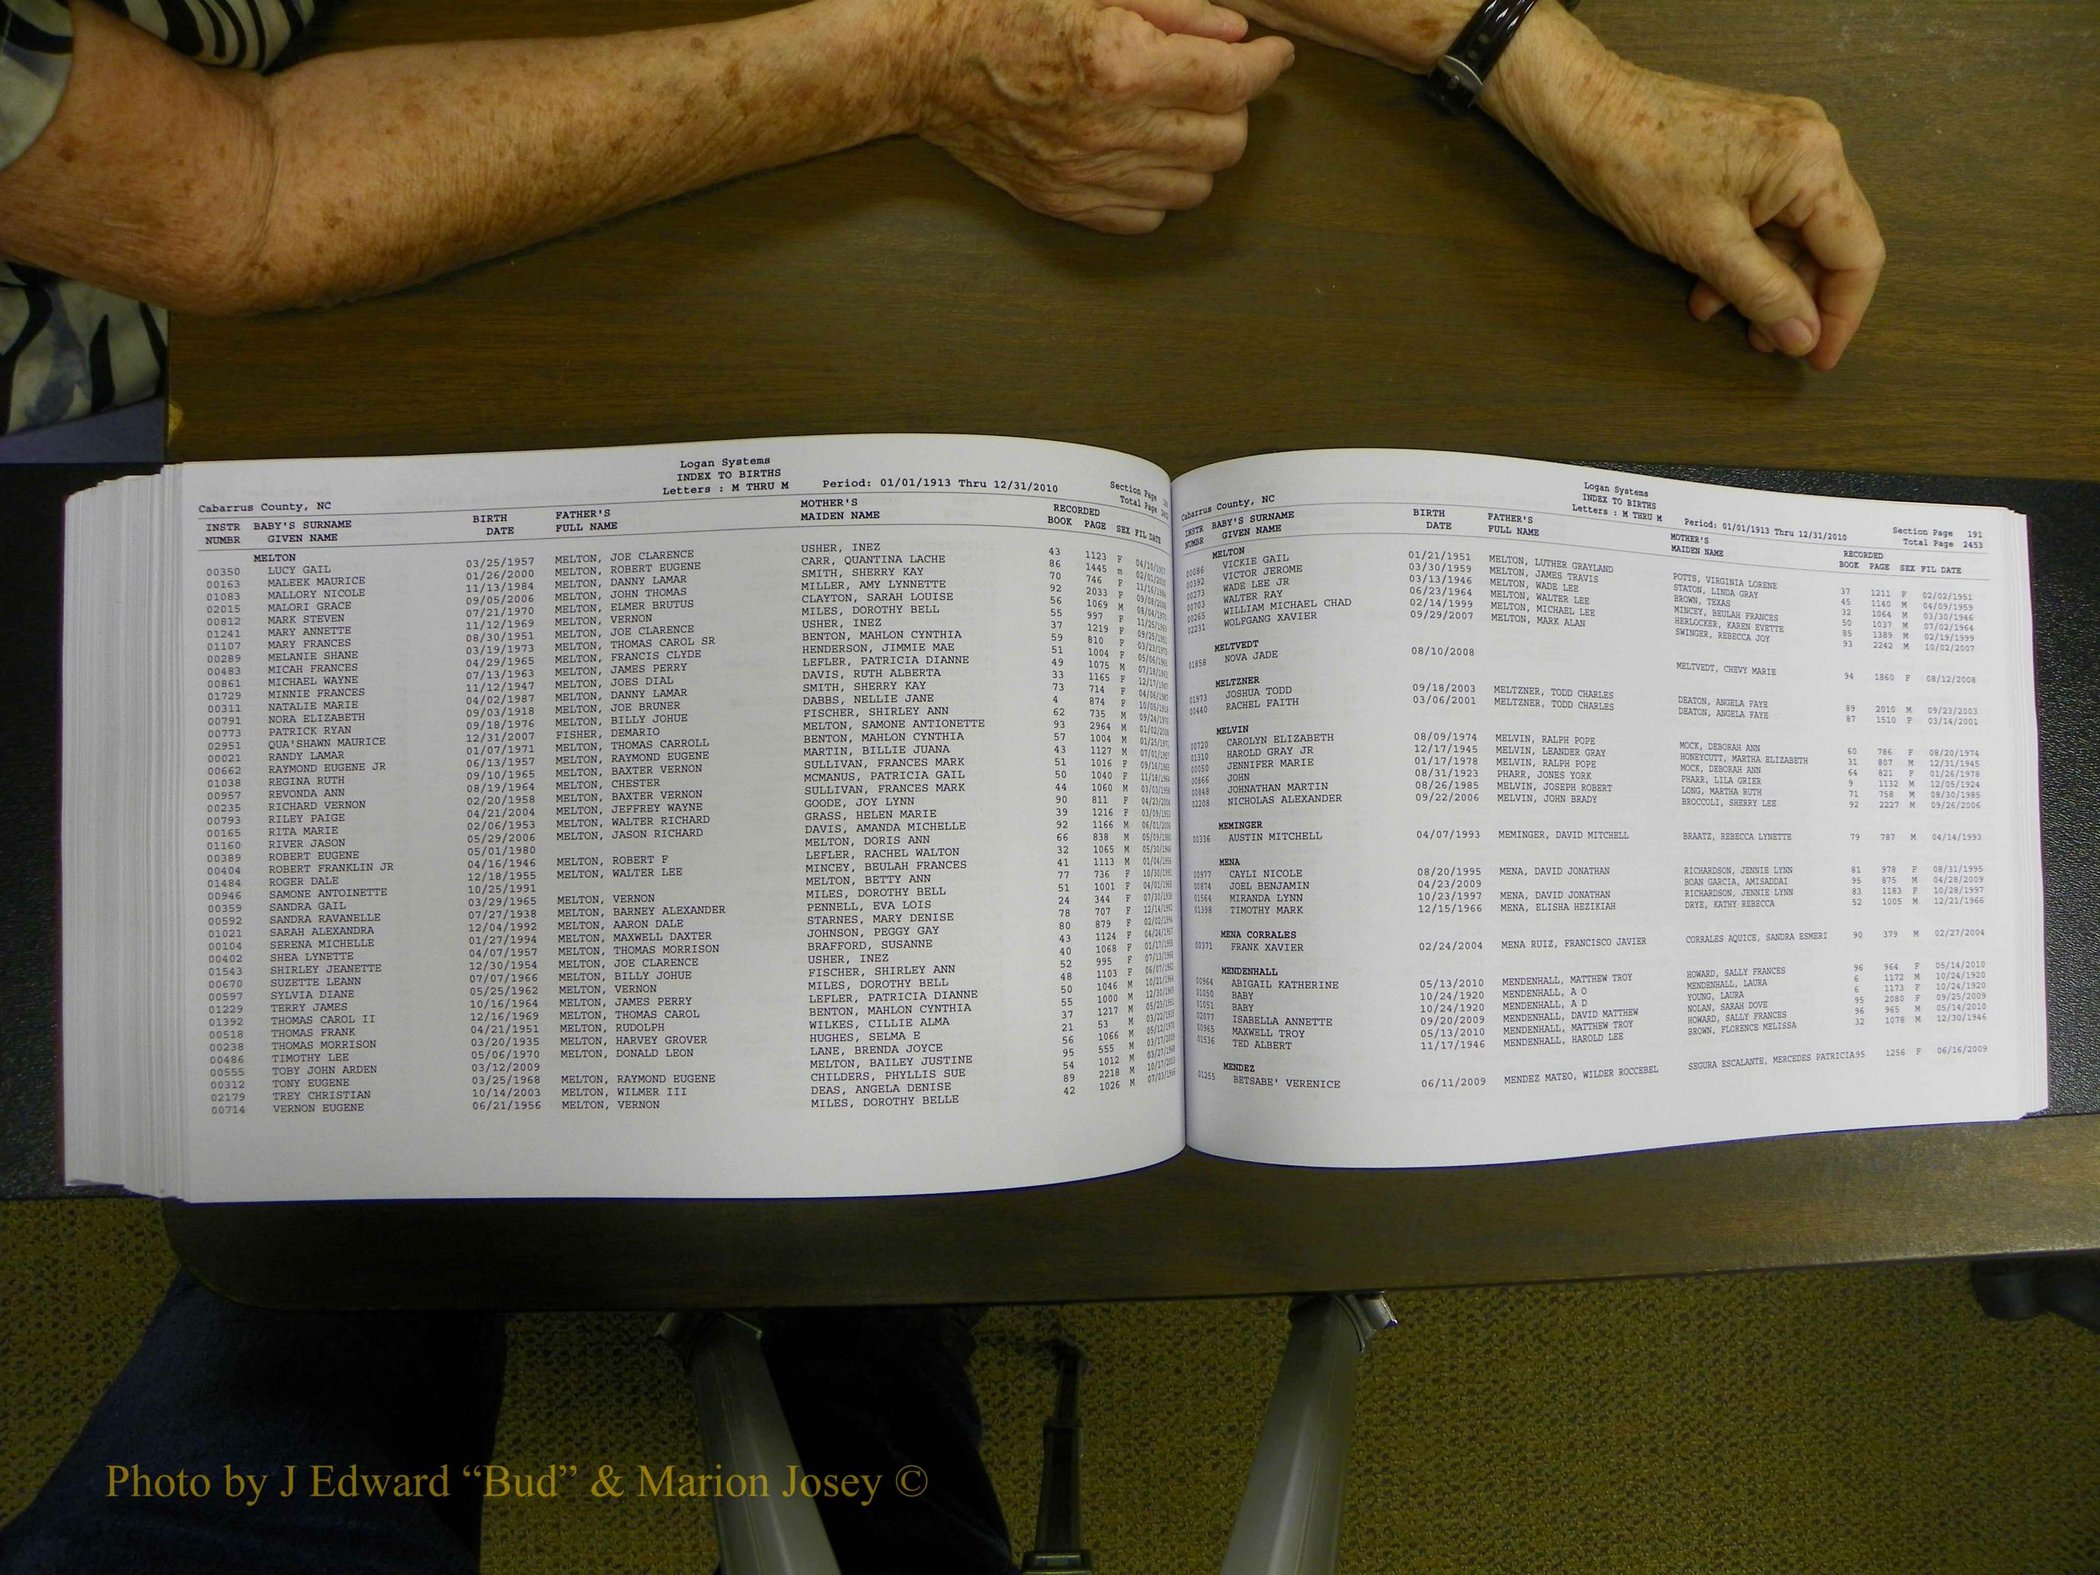 Logan Systems
INDEX TO BIRTHS
Cabarrus County, NC Letters : M THRU M Period: 01/01/1913 Thru 12/31/2010 Section Page
Total Page
INSTR BABY'S SURNAME BIRTH FATHER'S MOTHER'S RECORDED
NUMBR GIVEN NAME DATE FULL NAME MAIDEN NAME BOOK PAGE SEX FIL DATE
MELTON
00350 LUCY GAIL 03/25/1957 MELTON, JOE CLARENCE USHER, INEZ 43 1123 F
00163 MALEEK MAURICE 01/26/2000 MELTON, ROBERT EUGENE CARR, QUANTINA LACHE 86 1445 m
01083 MALLORY NICOLE 11/13/1984 MELTON, DANNY LAMAR SMITH, SHERRY KAY 70 746 F
02015 MALORI GRACE 09/05/2006 MELTON, JOHN THOMAS MILLER, AMY LYNNETTE 92 2033 F
00812 MARK STEVEN 07/21/1970 MELTON, ELMER BRUTUS CLAYTON, SARAH LOUISE 56 1069 M
01241 MARY ANNETTE 11/12/1969 MELTON, VERNON MILES, DOROTHY BELL 55 997 F
01107 MARY FRANCES 08/30/1951 MELTON, JOE CLARENCE USHER, INEZ 37 1219 F
00289 MELANIE SHANE 03/19/1973 MELTON, THOMAS CAROL SR BENTON, MAHLON CYNTHIA 59 810 F
00483 MICAH FRANCES 04/29/1965 MELTON, FRANCIS CLYDE HENDERSON, JIMMIE MAE 51 1004 F
00861 MICHAEL WAYNE 07/13/1963 MELTON, JAMES PERRY LEFLER, PATRICIA DIANNE 49 1075 M
01729 MINNIE FRANCES 11/12/1947 MELTON, JOES DIAL DAVIS, RUTH ALBERTA 33 1165 F
00311 NATALIE MARIE 04/02/1987 MELTON, DANNY LAMAR SMITH, SHERRY KAY 73 714 F
00791 NORA ELIZABETH 09/03/1918 MELTON, JOE BRUNER DABBS, NELLIE JANE 4 874 F
00773 PATRICK RYAN 09/18/1976 MELTON, BILLY JOHUE FISCHER, SHIRLEY ANN 62 735 M
02951 QUA'SHAWN MAURICE 12/31/2007 FISHER, DEMARIO MELTON, SAMONE ANTIONETTE 93 2964 M
00021 RANDY LAMAR 01/07/1971 MELTON, THOMAS CARROLL BENTON, MAHLON CYNTHIA 57 1004 M
00662 RAYMOND EUGENE JR 06/13/1957 MELTON, RAYMOND EUGENE MARTIN, BILLIE JUANA 43 1127 M
01038 REGINA RUTH 09/10/1965 MELTON, BAXTER VERNON SULLIVAN, FRANCES MARK 51 1016 F
00957 REVONDA ANN 08/19/1964 MELTON, CHESTER MCMANUS, PATRICIA GAIL 50 1040 F
00235 RICHARD VERNON 02/20/1958 MELTON, BAXTER VERNON SULLIVAN, FRANCES MARK 44 1060 M
00793 RILEY PAIGE 04/21/2004 MELTON, JEFFREY WAYNE GOODE, JOY LYNN 90 811 F
00165 RITA MARIE 02/06/1953 MELTON, WALTER RICHARD GRASS, HELEN MARIE 39 1216 F
01160 RIVER JASON 05/29/2006 MELTON, JASON RICHARD DAVIS, AMANDA MICHELLE 92 1166 M
00389 ROBERT EUGENE 05/01/1980 MELTON, DORIS ANN 66 838 M
00404 ROBERT FRANKLIN JR 04/16/1946 MELTON, ROBERT F LEFLER, RACHEL WALTON 32 1065 M
01484 ROGER DALE 12/18/1955 MELTON, WALTER LEE MINCEY, BEULAH FRANCES 41 1113 M
00946 SAMONE ANTOINETTE 10/25/1991 MELTON, BETTY ANN 77 736 F
00359 SANDRA GAIL 03/29/1965 MELTON, VERNON MILES, DOROTHY BELL 51 1001 F
00592 SANDRA RAVANELLE 07/27/1938 MELTON, BARNEY ALEXANDER PENNELL, EVA LOIS 24 344 F
01021 SARAH ALEXANDRA 12/04/1992 MELTON, AARON DALE STARNES, MARY DENISE 78 707 F
00104 SERENA MICHELLE 01/27/1994 MELTON, MAXWELL DAXTER JOHNSON, PEGGY GAY 80 879 F
00402 SHEA LYNETTE 04/07/1957 MELTON, THOMAS MORRISON BRAFFORD, SUSANNE 43 1124 F
01543 SHIRLEY JEANETTE 12/30/1954 MELTON, JOE CLARENCE USHER, INEZ 40 1068 F
00670 SUZETTE LEANN 07/07/1966 MELTON, BILLY JOHUE FISCHER, SHIRLEY ANN 52 995 F
00597 SYLVIA DIANE 05/25/1962 MELTON, VERNON MILES, DOROTHY BELL 48 1103 F
01229 TERRY JAMES 10/16/1964 MELTON, JAMES PERRY LEFLER, PATRICIA DIANNE 50 1046 M
01392 THOMAS CAROL II 12/16/1969 MELTON, THOMAS CAROL BENTON, MAHLON CYNTHIA 55 1000 M
00518 THOMAS FRANK 04/21/1951 MELTON, RUDOLPH WILKES, CILLIE ALMA 37 1217 M
00238 THOMAS MORRISON 03/20/1935 MELTON, HARVEY GROVER HUGHES, SELMA E 21 53 M
00486 TIMOTHY LEE 05/06/1970 MELTON, DONALD LEON LANE, BRENDA JOYCE 56 1066 M
00555 TOBY JOHN ARDEN 03/12/2009 MELTON, BAILEY JUSTINE 95 555 M
00312 TONY EUGENE 03/25/1968 MELTON, RAYMOND EUGENE CHILDERS, PHYLLIS SUE 54 1012 M
02179 TREY CHRISTIAN 10/14/2003 MELTON, WILMER III DEAS, ANGELA DENISE 89 2218 M
00714 VERNON EUGENE 06/21/1956 MELTON, VERNON MILES, DOROTHY BELLE 42 1026 M
Logan Systems
INDEX TO BIRTHS
Cabarrus County, NC Letters : M THRU M Period: 01/01/1913 Thru 12/31/2010 Section Page 191
Total Page 2453
INSTR BABY'S SURNAME BIRTH FATHER'S MOTHER'S RECORDED
NUMBR GIVEN NAME DATE FULL NAME MAIDEN NAME BOOK PAGE SEX FIL DATE
MELTON
00086 VICKIE GAIL 01/21/1951 MELTON, LUTHER GRAYLAND POTTS, VIRGINIA LORENE 37 1211 F 02/02/1951
00392 VICTOR JEROME 03/30/1959 MELTON, JAMES TRAVIS STATON, LINDA GRAY 45 1140 M 04/09/1959
00273 WADE LEE JR 03/13/1946 MELTON, WADE LEE BROWN, TEXAS 32 1064 M 03/30/1946
00703 WALTER RAY 06/23/1964 MELTON, WALTER LEE MINCEY, BEULAH FRANCES 50 1037 M 07/02/1964
00265 WILLIAM MICHAEL CHAD 02/14/1999 MELTON, MICHAEL LEE HERLOCKER, KAREN EVETTE 85 1389 M 02/19/1999
02231 WOLFGANG XAVIER 09/29/2007 MELTON, MARK ALAN SWINGER, REBECCA JOY 93 2242 M 10/02/2007
MELTVEDT
01858 NOVA JADE 08/10/2008 MELTVEDT, CHEVY MARIE 94 1860 F 08/12/2008
MELTZNER
01973 JOSHUA TODD 09/18/2003 MELTZNER, TODD CHARLES DEATON, ANGELA FAYE 89 2010 M 09/23/2003
00440 RACHEL FAITH 03/06/2001 MELTZNER, TODD CHARLES DEATON, ANGELA FAYE 87 1510 F 03/14/2001
MELVIN
00720 CAROLYN ELIZABETH 08/09/1974 MELVIN, RALPH POPE MOCK, DEBORAH ANN 60 786 F 08/20/1974
01310 HAROLD GRAY JR 12/17/1945 MELVIN, LEANDER GRAY HONEYCUTT, MARTHA ELIZABETH 31 807 M 12/31/1945
00050 JENNIFER MARIE 01/17/1978 MELVIN, RALPH POPE MOCK, DEBORAH ANN 64 821 F 01/26/1978
00866 JOHN 08/31/1923 PHARR, JONES YORK PHARR, LILA GRIER 9 1132 M 12/05/1924
00848 JOHNATHAN MARTIN 08/26/1985 MELVIN, JOSEPH ROBERT LONG, MARTHA RUTH 71 758 M 08/30/1985
02208 NICHOLAS ALEXANDER 09/22/2006 MELVIN, JOHN BRADY BROCCOLI, SHERRY LEE 92 2227 M 09/26/2006
MEMINGER
00336 AUSTIN MITCHELL 04/07/1993 MEMINGER, DAVID MITCHELL BRAATZ, REBECCA LYNETTE 79 787 M 04/14/1993
MENA
00977 CAYLI NICOLE 08/20/1995 MENA, DAVID JONATHAN RICHARDSON, JENNIE LYNN 81 978 F 08/31/1995
00874 JOEL BENJAMIN 04/23/2009 BOAN GARCIA, AMISADDAI 95 875 M 04/28/2009
01564 MIRANDA LYNN 10/23/1997 MENA, DAVID JONATHAN RICHARDSON, JENNIE LYNN 83 1183 F 10/28/1997
01398 TIMOTHY MARK 12/15/1966 MENA, ELISHA HEZIKIAH DRYE, KATHY REBECCA 52 1005 M 12/21/1966
MENA CORRALES
00371 FRANK XAVIER 02/24/2004 MENA RUIZ, FRANCISCO JAVIER CORRALES AQUICE, SANDRA ESMERI 90 379 M 02/27/2004
MENDENHALL
00964 ABIGAIL KATHERINE 05/13/2010 MENDENHALL, MATTHEW TROY HOWARD, SALLY FRANCES 96 964 F 05/14/2010
01050 BABY 10/24/1920 MENDENHALL, A O MENDENHALL, LAURA 6 1172 M 10/24/1920
01051 BABY 10/24/1920 MENDENHALL, A D YOUNG, LAURA 6 1173 F 10/24/1920
02077 ISABELLA ANNETTE 09/20/2009 MENDENHALL, DAVID MATTHEW NOLAN, SARAH DOVE 95 2080 F 09/25/2009
00965 MAXWELL TROY 05/13/2010 MENDENHALL, MATTHEW TROY HOWARD, SALLY FRANCES 96 965 M 05/14/2010
01536 TED ALBERT 11/17/1946 MENDENHALL, HAROLD LEE BROWN, FLORENCE MELISSA 32 1078 M 12/30/1946
MENDEZ
01255 BETSABE' VERENICE 06/11/2009 MENDEZ MATEO, WILDER ROCCEBEL SEGURA ESCALANTE, MERCEDES PATRICIA95 1256 F 06/16/2009
Photo by J Edward “Bud” & Marion Josey ©